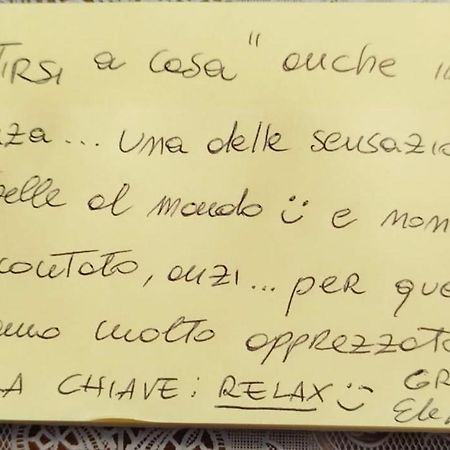 TIRSI a casa" anche in
nza... una delle sensazio
belle al mondo :) e non
contato, anzi... per que
amo molto apprezzato
LA CHIAVE: RELAX :) GR
Ele